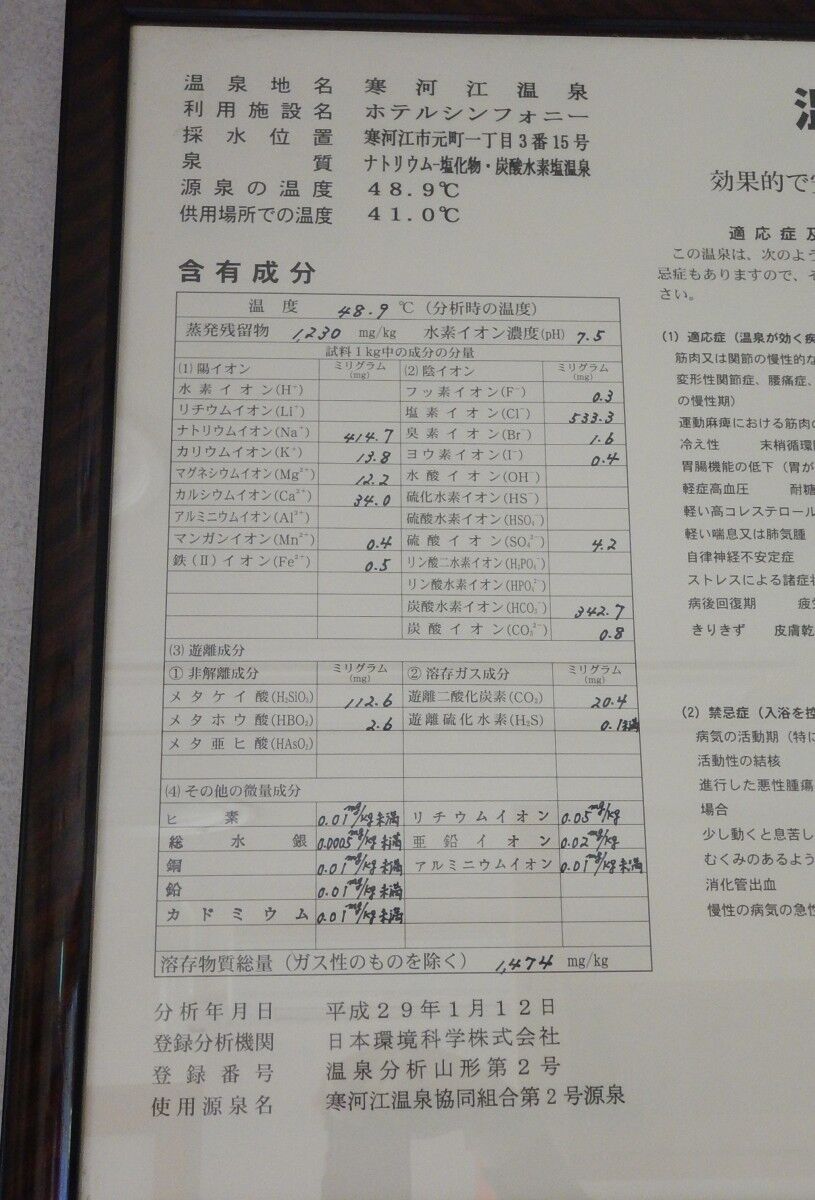 温泉地名 寒河江温泉
利用施設名 ホテルシンフォニー
採水位置 寒河江市元町一丁目3番15号
泉質 ナトリウム-塩化物・炭酸水素塩温泉
源泉の温度 48.9℃
供用場所での温度 41.0℃
含有成分
温度 48.9 ℃(分析時の温度)
蒸発残留物 1,230 mg/kg 水素イオン濃度(pH) 7.5
試料1kg中の成分の分量
(1)陽イオン ミリグラム(mg) (2)陰イオン ミリグラム(mg)
水素イオン(H⁺) フッ素イオン(F⁻) 0.3
リチウムイオン(Li⁺) 塩素イオン(Cl⁻) 533.3
ナトリウムイオン(Na⁺) 414.7 臭素イオン(Br⁻) 1.6
カリウムイオン(K⁺) 13.8 ヨウ素イオン(I⁻) 0.4
マグネシウムイオン(Mg²⁺) 12.2 水酸イオン(OH⁻)
カルシウムイオン(Ca²⁺) 34.0 硫化水素イオン(HS⁻)
アルミニウムイオン(Al³⁺) 硫酸水素イオン(HSO₄⁻)
マンガンイオン(Mn²⁺) 0.4 硫酸イオン(SO₄²⁻) 4.2
鉄(Ⅱ)イオン(Fe²⁺) 0.5 リン酸二水素イオン(H₂PO₄⁻)
リン酸水素イオン(HPO₄²⁻)
炭酸水素イオン(HCO₃⁻) 342.7
炭酸イオン(CO₃²⁻) 0.8
(3)遊離成分
①非解離成分 ミリグラム(mg) ②溶存ガス成分 ミリグラム(mg)
メタケイ酸(H₂SiO₃) 112.6 遊離二酸化炭素(CO₂) 20.4
メタホウ酸(HBO₂) 2.6 遊離硫化水素(H₂S) 0.1未満
メタ亜ヒ酸(HAsO₂)
(4)その他の微量成分
ヒ素 0.01mg/kg未満 リチウムイオン 0.05mg/kg
総水銀 0.0005mg/kg未満 亜鉛イオン 0.02mg/kg
銅 0.01mg/kg未満 アルミニウムイオン 0.01mg/kg未満
鉛 0.01mg/kg未満
カドミウム 0.01mg/kg未満
溶存物質総量(ガス性のものを除く) 1,474 mg/kg
分析年月日 平成29年1月12日
登録分析機関 日本環境科学株式会社
登録番号 温泉分析山形第2号
使用源泉名 寒河江温泉協同組合第2号源泉
効果的で
適応症及
この温泉は、次のよう
忌症もありますので、そ
さい。
(1)適応症(温泉が効く疾
筋肉又は関節の慢性的な
変形性関節症、腰痛症、
の慢性期)
運動麻痺における筋肉の
冷え性 末梢循環
胃腸機能の低下(胃が
軽症高血圧 耐糖
軽い高コレステロール
軽い喘息又は肺気腫
自律神経不安定症
ストレスによる諸症状
病後回復期 疲
きりきず 皮膚乾
(2)禁忌症(入浴を控
病気の活動期(特に
活動性の結核
進行した悪性腫瘍
場合
少し動くと息苦し
むくみのあるよう
消化管出血
慢性の病気の急性